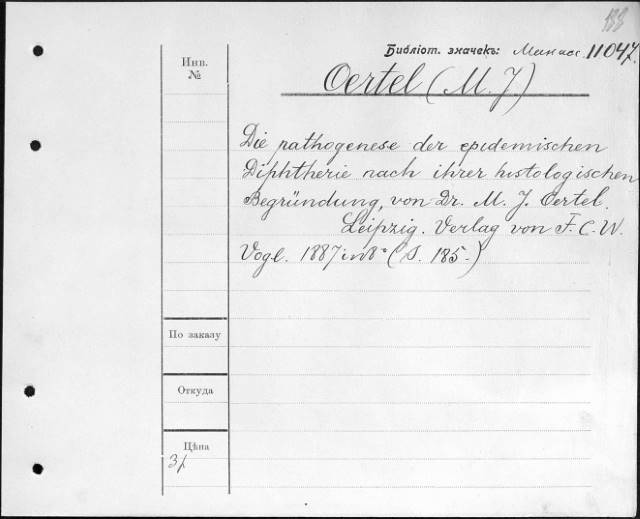 188
Библіот. значекъ: Манасс. 11047.
Инв.
№
Oertel (M. J)
Die pathogenese der epidemischen
Diphtherie nach ihrer histologischen
Begründung, von Dr. M. J. Oertel.
Leipzig. Verlag von F. C. W.
Vogl. 1887 in 8° (S. 185.)
По заказу
Откуда
Цѣна
3р